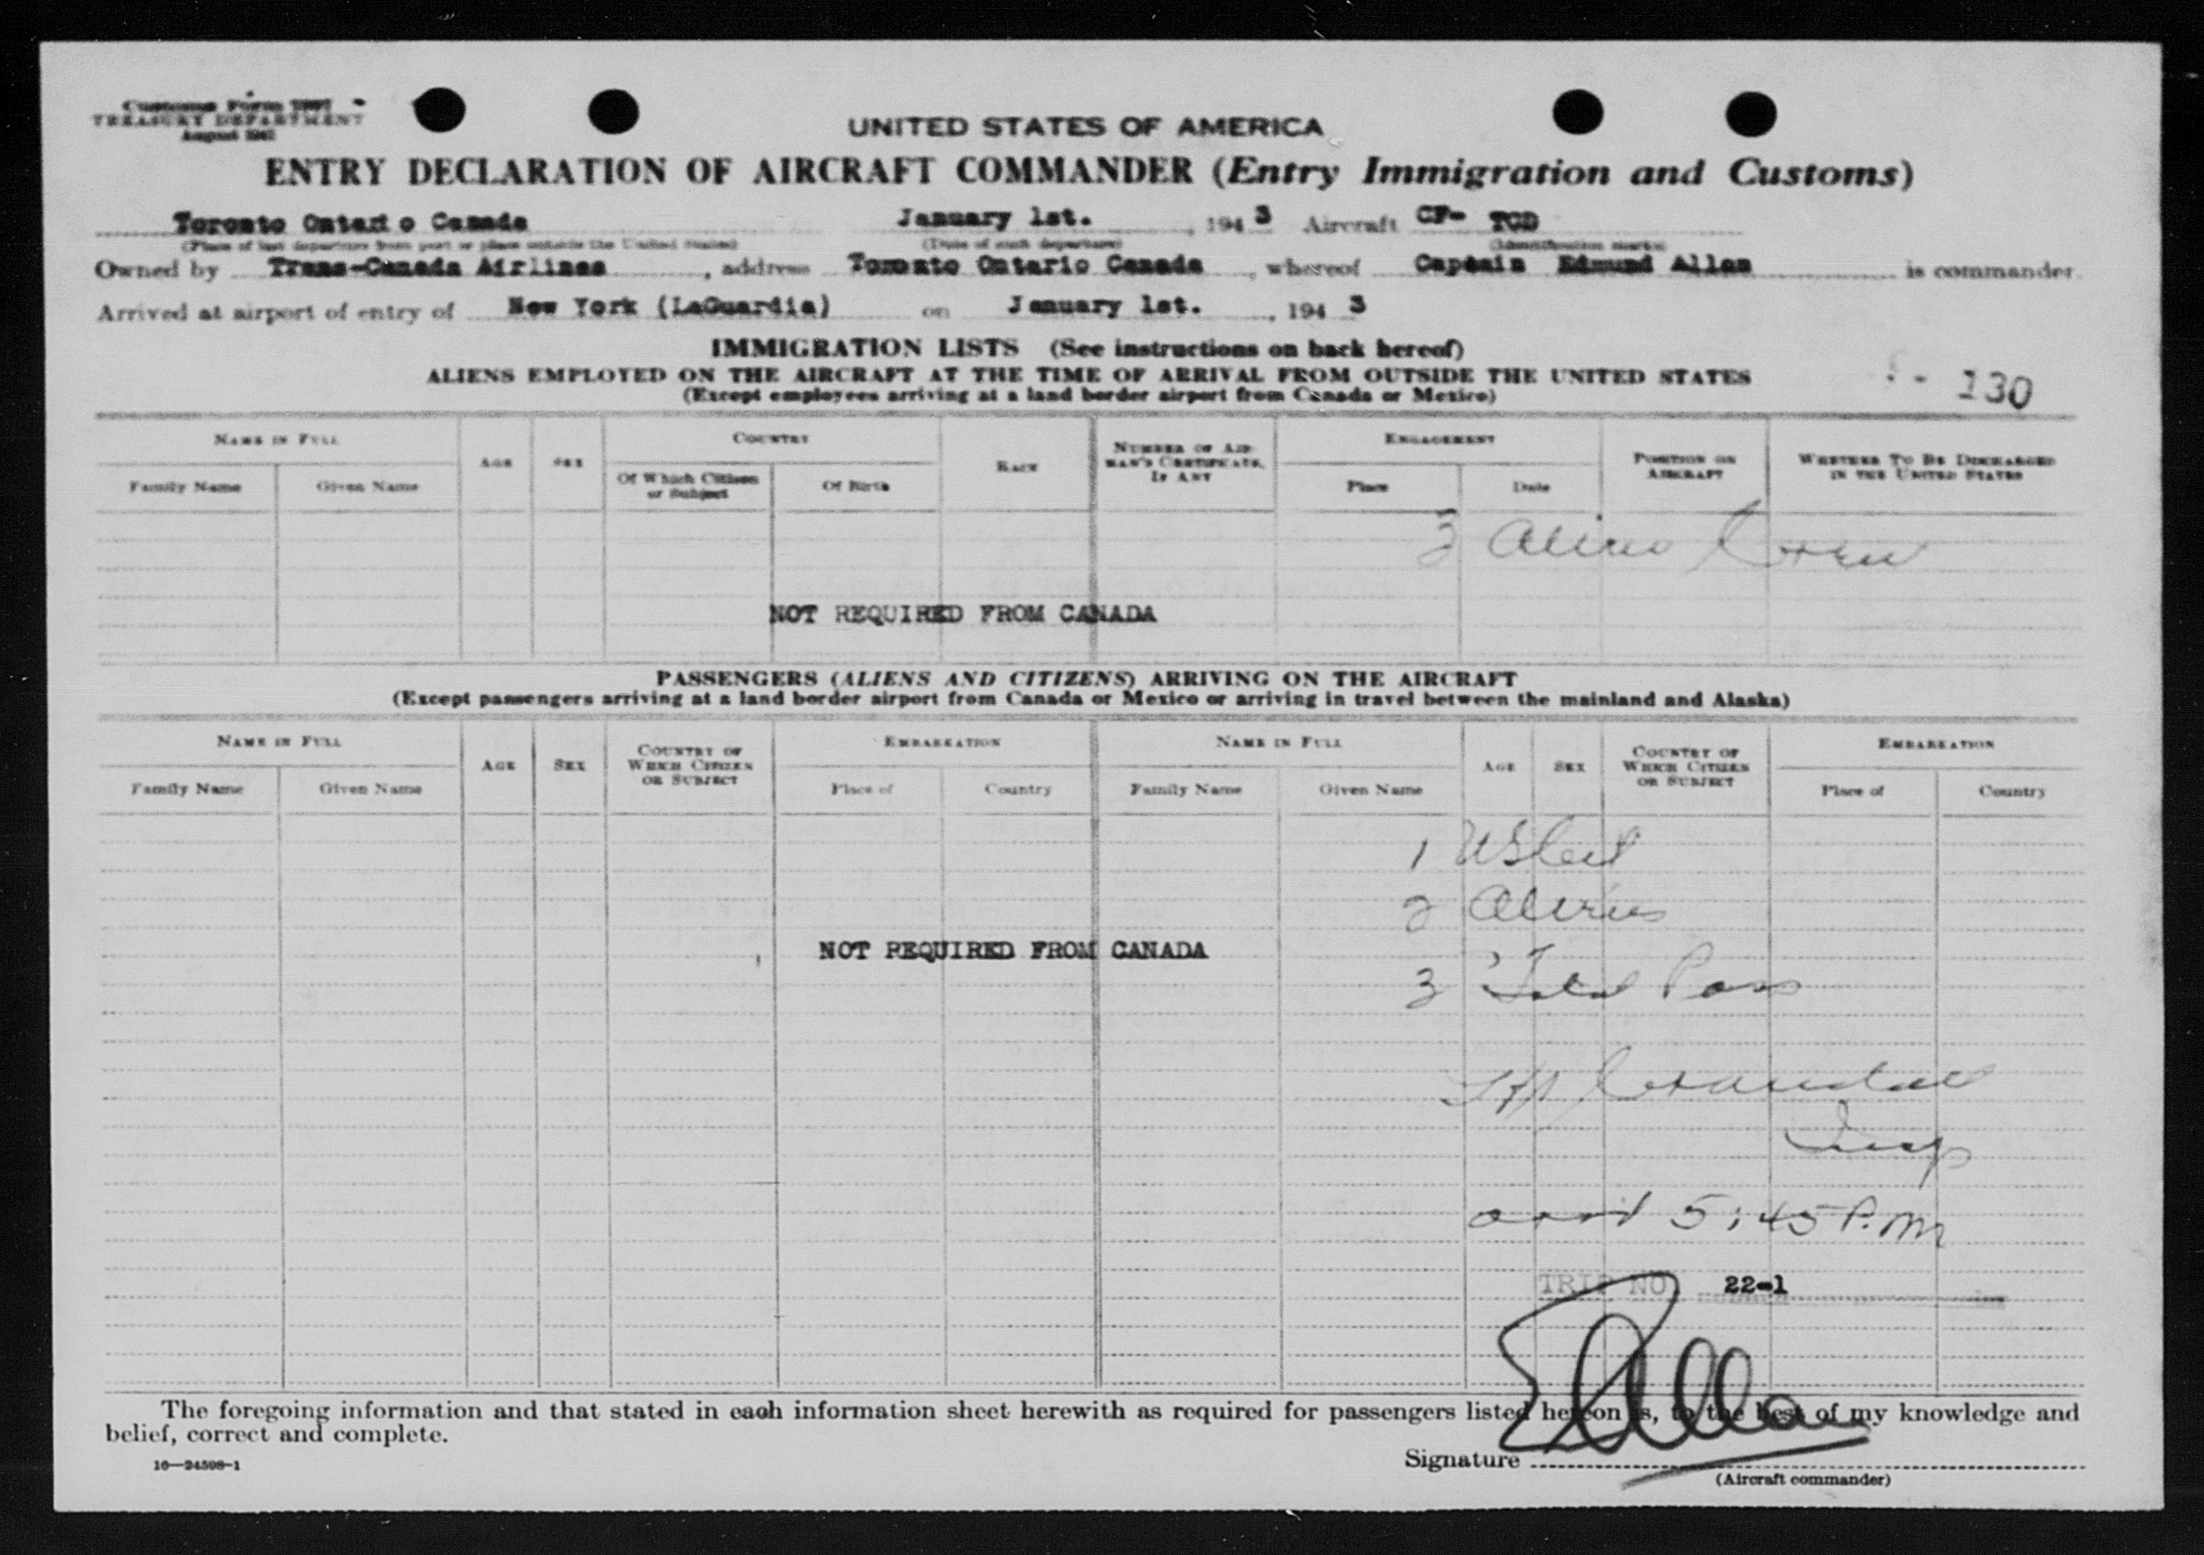 Customs Form 7507
TREASURY DEPARTMENT
August 1941
UNITED STATES OF AMERICA
ENTRY DECLARATION OF AIRCRAFT COMMANDER (Entry Immigration and Customs)
Toronto Ontario Canada January 1st. , 194 3 Aircraft CF- TCD
(Place of last departure from port or place outside the United States) (Date of such departure) (Identification marks)
Owned by Trans-Canada Airlines , address Toronto Ontario Canada , whereof Captain Edmund Allen is commander.
Arrived at airport of entry of New York (LaGuardia) on January 1st. , 194 3
IMMIGRATION LISTS (See instructions on back hereof)
ALIENS EMPLOYED ON THE AIRCRAFT AT THE TIME OF ARRIVAL FROM OUTSIDE THE UNITED STATES
130
(Except employees arriving at a land border airport from Canada or Mexico)
NAME IN FULL AGE SEX COUNTRY RACE NUMBER OF AIRMAN'S CERTIFICATE, IF ANY ENGAGEMENT POSITION ON AIRCRAFT WHETHER TO BE DISCHARGED IN THE UNITED STATES
Family Name Given Name Of Which Citizen or Subject Of Birth Place Date
3 Alien Crew
NOT REQUIRED FROM CANADA
PASSENGERS (ALIENS AND CITIZENS) ARRIVING ON THE AIRCRAFT
(Except passengers arriving at a land border airport from Canada or Mexico or arriving in travel between the mainland and Alaska)
NAME IN FULL AGE SEX COUNTRY OF WHICH CITIZEN OR SUBJECT EMBARKATION NAME IN FULL AGE SEX COUNTRY OF WHICH CITIZEN OR SUBJECT EMBARKATION
Family Name Given Name Place of Country Family Name Given Name Place of Country
1 US Cit
2 Aliens
NOT REQUIRED FROM CANADA
3 Total Pass
Crandall
Insp
arrd 5:45 P.M
TRIP NO. 22-1
E Allen
The foregoing information and that stated in each information sheet herewith as required for passengers listed hereon is, to the best of my knowledge and
belief, correct and complete.
16—24598-1
Signature
(Aircraft commander)